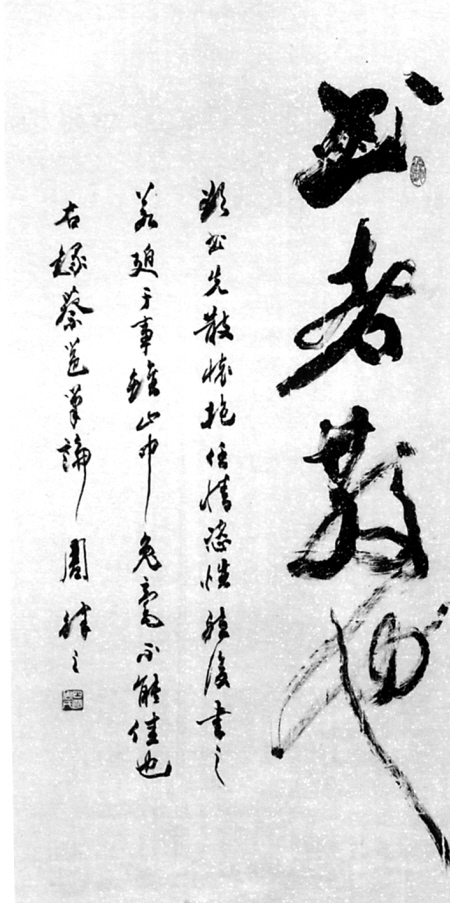 书者散也
欲书先散懷抱任情恣性然後書之
若迫于事雖山中兔毫不能佳也
右錄蔡邕筆論 周之